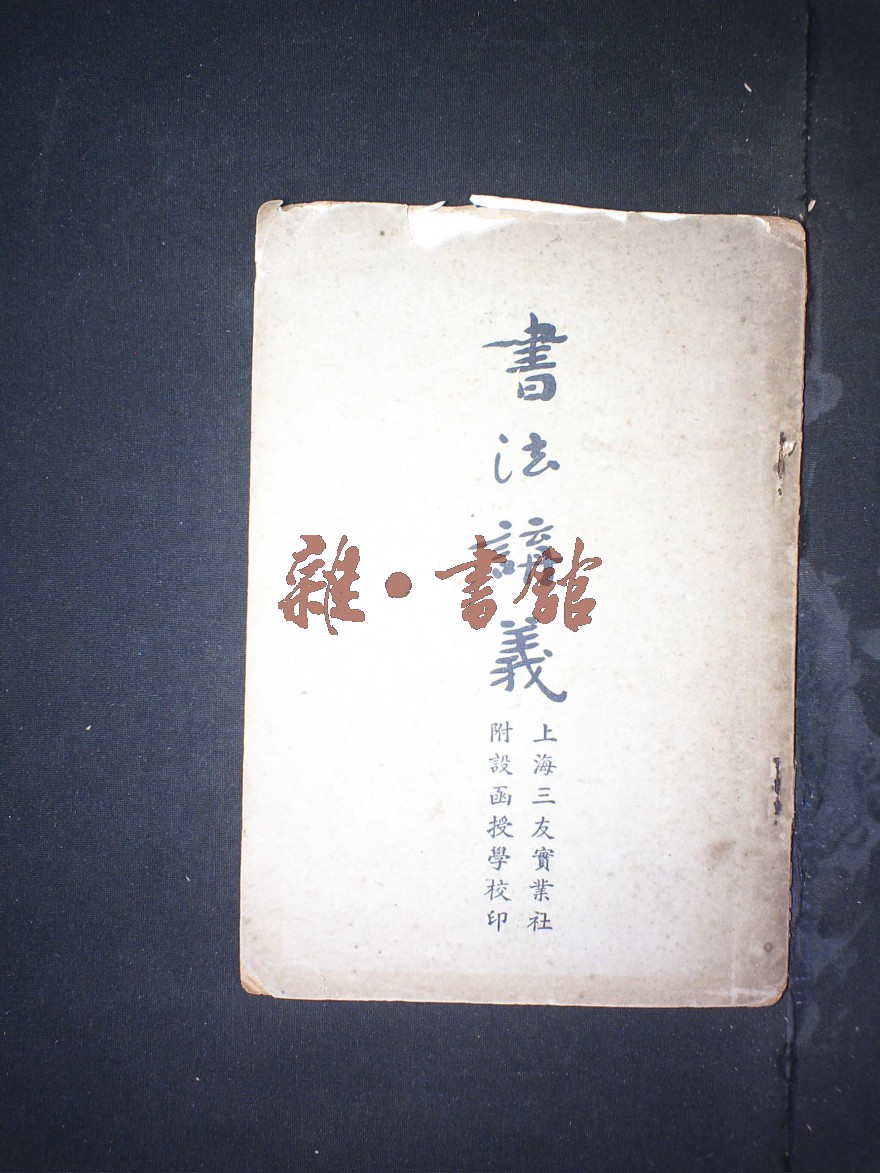 書法講義
上海三友實業社
附設函授學校印
雜•書館